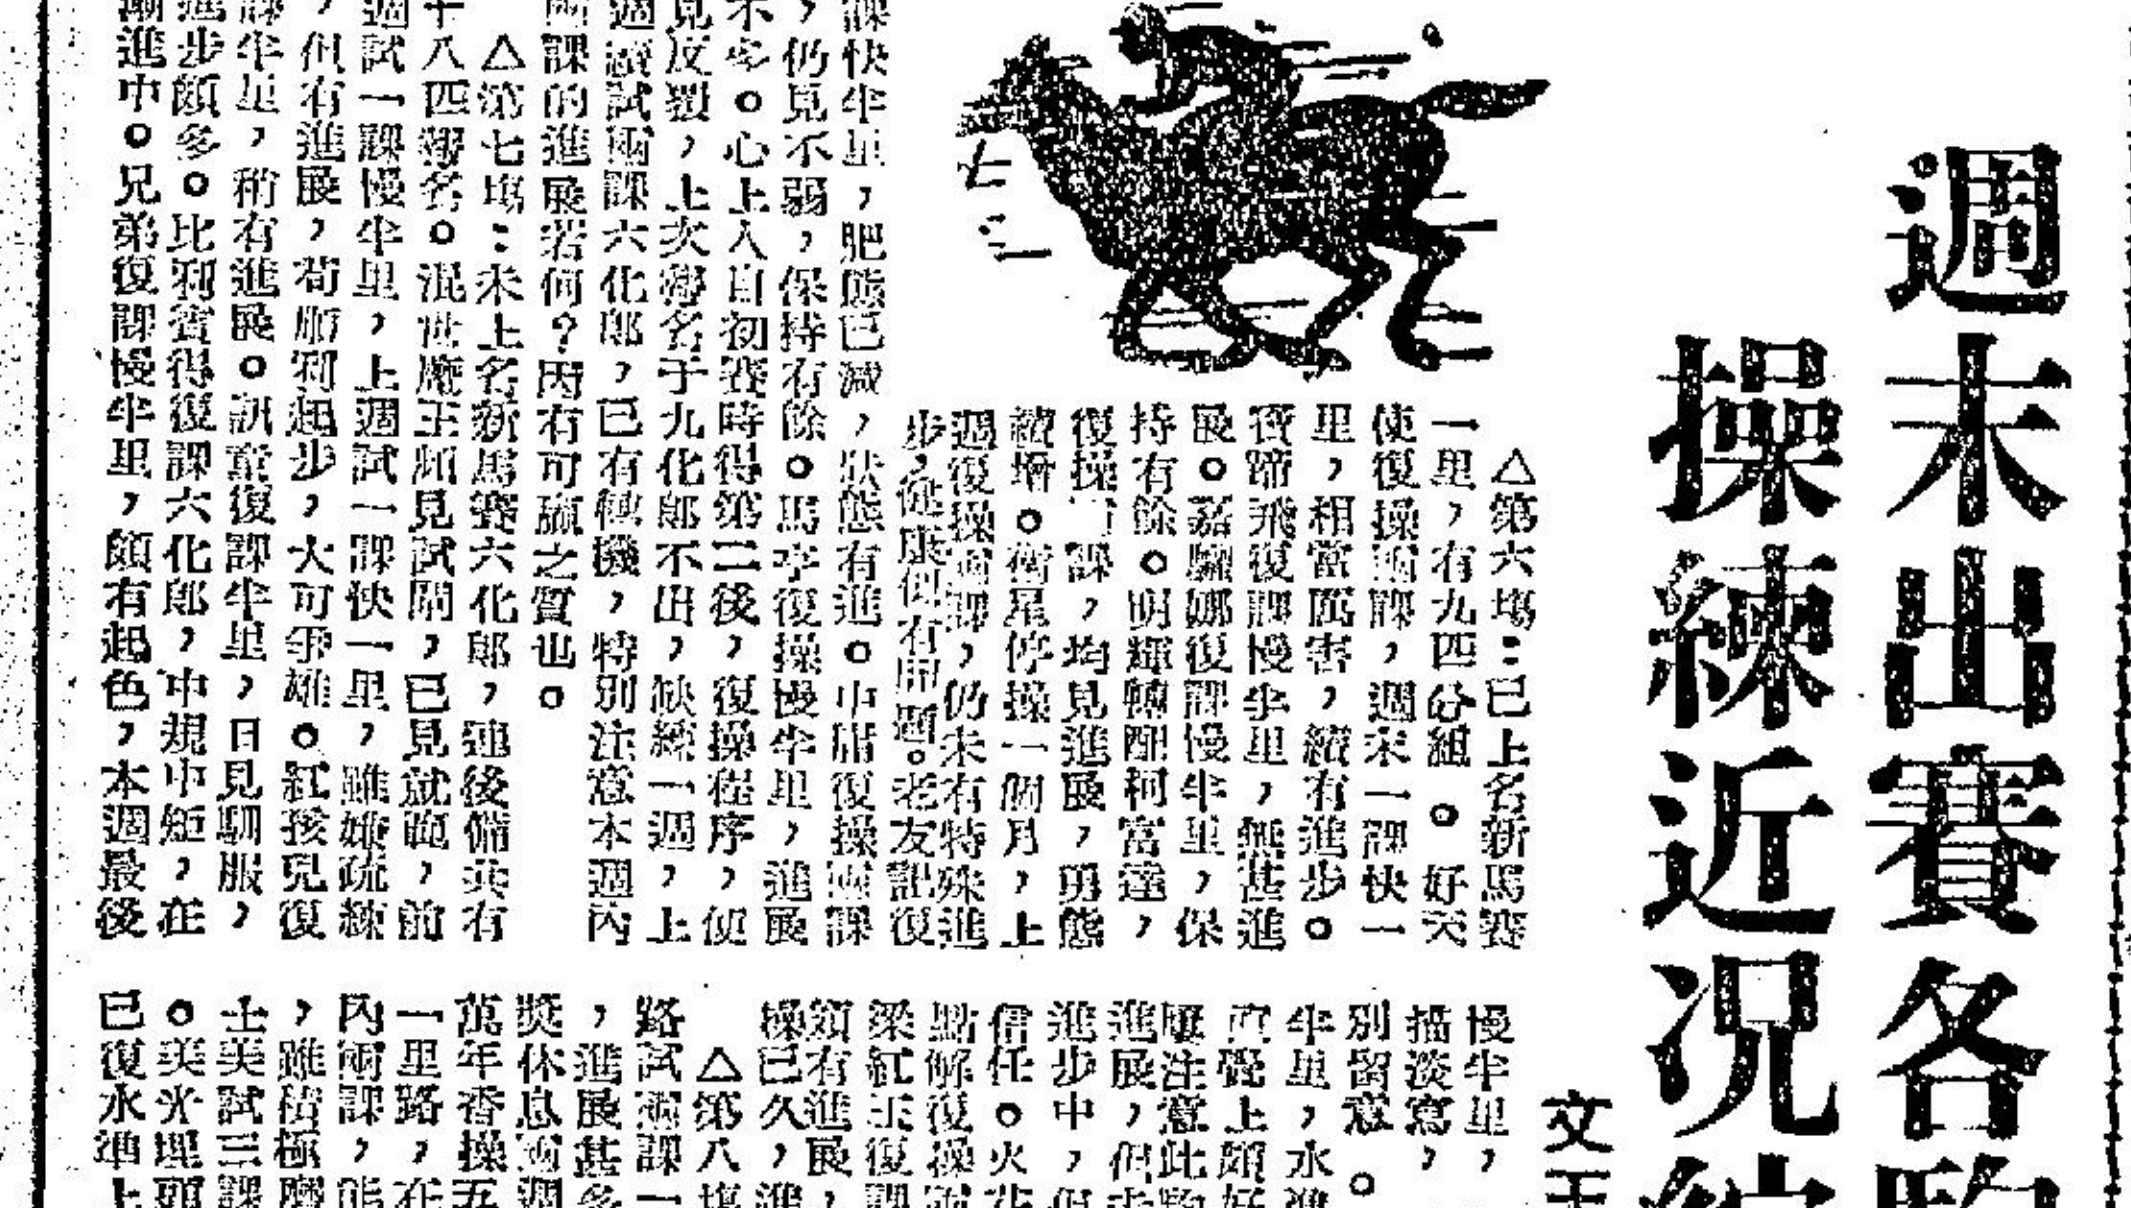 週末出賽各駒
操練近況
文王
△第六塲：已上名新馬賽
一里，有九四分組。好天
使復操兩課，週末一課快一
里，相當厲害，續有進步。
寶蹄飛復課慢半里，無甚進
展。嘉驪娜復課慢半里，保
持有餘。明輝轉配柯富達，
復操兩課，均見進展，勇態
續增。衛星停操一個月，上
週復操兩課，仍未有特殊進
步，健康似有問題。老友記復
課快半里，肥態已減，狀態有進。中庸復操兩課
，仍見不弱，保持有餘。馬卒復操慢半里，進展
不多。心上人自初賽時得第二後，復操程序，使
見反覆，上次報名于九化郎不出，缺練一週，上
週續試兩課六化郎，已有轉機，特別注意本週內
兩課的進展若何？因有可贏之質也。
△第七塲：未上名新馬賽六化郎，連後備共有
十八匹報名。混世魔王頻見試閘，已見就範，前
週試一課慢半里，上週試一課快一里，雖嫌疏練
，但有進展，苟順利起步，大可爭雄。紅孩兒復
課半里，稍有進展。訓童復課半里，日見馴服，
進步頗多。比利賓得復課六化郎，中規中矩，在
漸進中。兄弟復課慢半里，頗有起色，本週最後
慢半里，
描淡寫，
別留意。
半里，水準
直覺上頗好
應注意此駒
進展，但未
進步中，但
信任。火花
點解復操兩
梁紅玉復課
頗有進展，
操已久，進
△第八塲
路試兩課一
，進展甚多
獎休息兩週
萬年香操五
一里路，在
內兩課，能
，雖積極磨
士美試三課
。美光埋頭
已復水準上